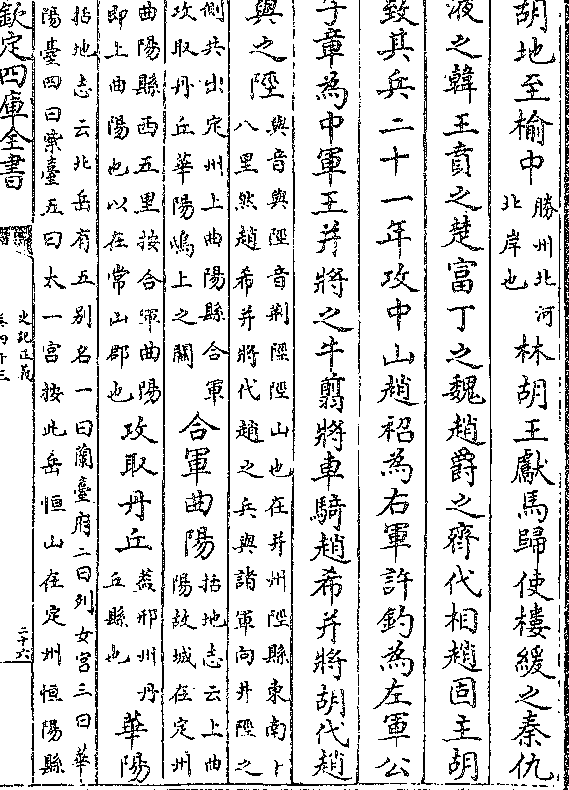 胡地至榆中
勝州北河
北岸也
林胡王獻馬歸使樓緩之秦仇
液之韓王賁之楚富丁之魏趙爵之齊代相趙固主胡
致其兵二十一年攻中山趙袑為右軍許鈞為左軍公
子章為中軍王并將之牛翦將車騎趙希并將胡代趙
與之陘
與音與陘音荆陘陘山也在并州陘縣東南十
八里然趙希并將代趙之兵與諸軍向井陘之
側共出定州上曲陽縣合軍
攻取丹丘華陽鴟上之關
合軍曲陽
括地志云上曲
陽故城在定州
曲陽縣西五里按合軍曲陽
即上曲陽也以在常山郡也
攻取丹丘
葢邢州丹
丘縣也
華陽
括地志云北岳有五别名一曰蘭臺府二曰列女宫三曰華
陽臺四曰紫臺五曰太一宫按此岳恒山在定州恒陽縣
欽定四庫全書
史記正義
卷四十三
二十六